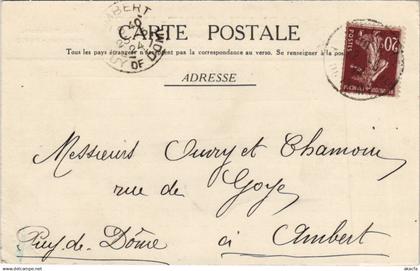 AMBERT
PUY DE DOME
CARTE POSTALE
Tous les pays étrangers n'acceptent pas la correspondance au verso. Se renseigner à la poste
ADRESSE
POSTES
20
Messieurs Ouvry et Chamoin
rue de Goye
Puy-de-Dôme à Ambert
www.akarty.com